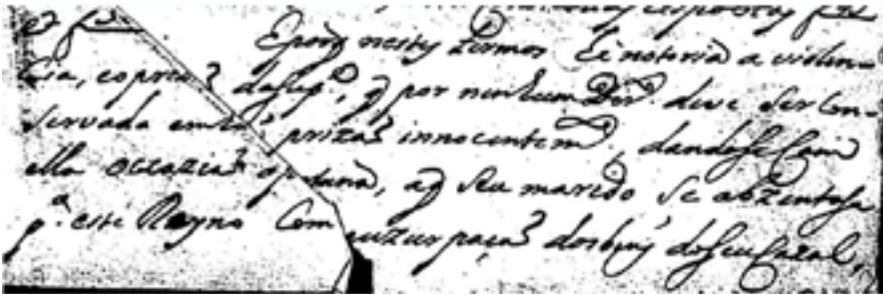 E porq nestes termos he notoria a violen-
cia, e opreçaõ da sup.e, q por nenhum Dir.to deve ser con-
servada em tal prizaõ innocentem.e, dandose com
ella occaziaõ oportuna, aq seu marido se abzentasse
p.a este Reyno com uzurpaçaõ dos bens do seu cazal,